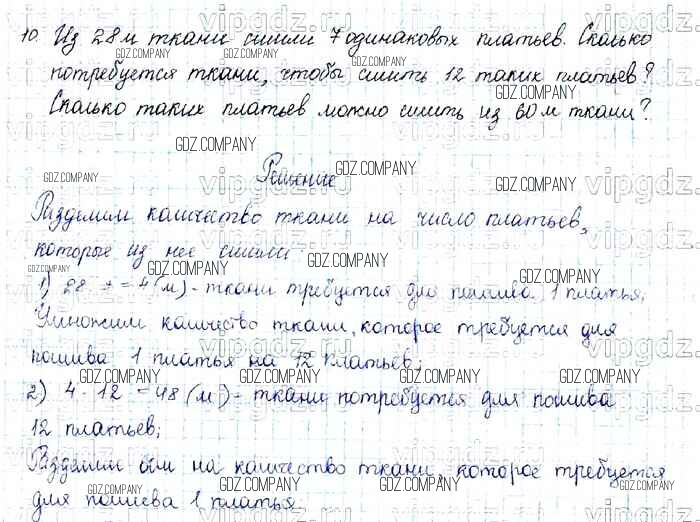 10. Из 28 м ткани сшили 7 одинаковых платьев. Сколько
потребуется ткани, чтобы сшить 12 таких платьев?
Сколько таких платьев можно сшить из 60 м ткани?
Решение
Разделим количество ткани на число платьев,
которые из нее сшили
1) 28 : 7 = 4 (м) - ткани требуется для пошива 1 платья,
Умножим количество ткани, которое требуется для
пошива 1 платья на 12 платьев;
2) 4 · 12 = 48 (м) - ткани потребуется для пошива
12 платьев;
Разделим 60м на количество ткани, которое требуется
для пошива 1 платья
GDZ.COMPANY
vipgdz.ru